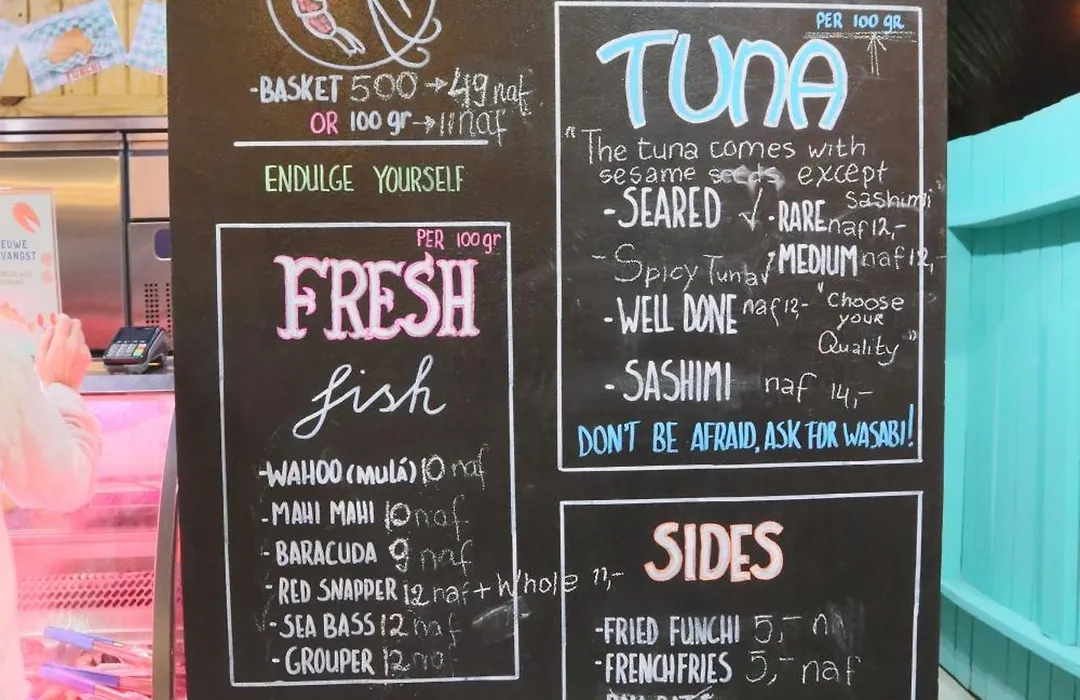 -BASKET 500→49 naf
OR 100 gr→11 naf
ENDULGE YOURSELF
PER 100 gr
FRESH
fish
-WAHOO (MULÁ) 10 naf
-MAHI MAHI 10 naf
-BARACUDA 9 naf
-RED SNAPPER 12 naf + Whole 11,-
-SEA BASS 12 naf
-GROUPER 12 naf
PER 100 gr
TUNA
"The tuna comes with
sesame seeds except
Sashimi"
-SEARED ✓
-RARE naf 12,-
-Spicy Tuna
-MEDIUM naf 12,-
-WELL DONE naf 12-
"Choose
your
Quality"
-SASHIMI naf 14,-
DON'T BE AFRAID, ASK FOR WASABI!
SIDES
-FRIED FUNCHI 5,- n
-FRENCHFRIES 5,- naf
EUWE
VANGST